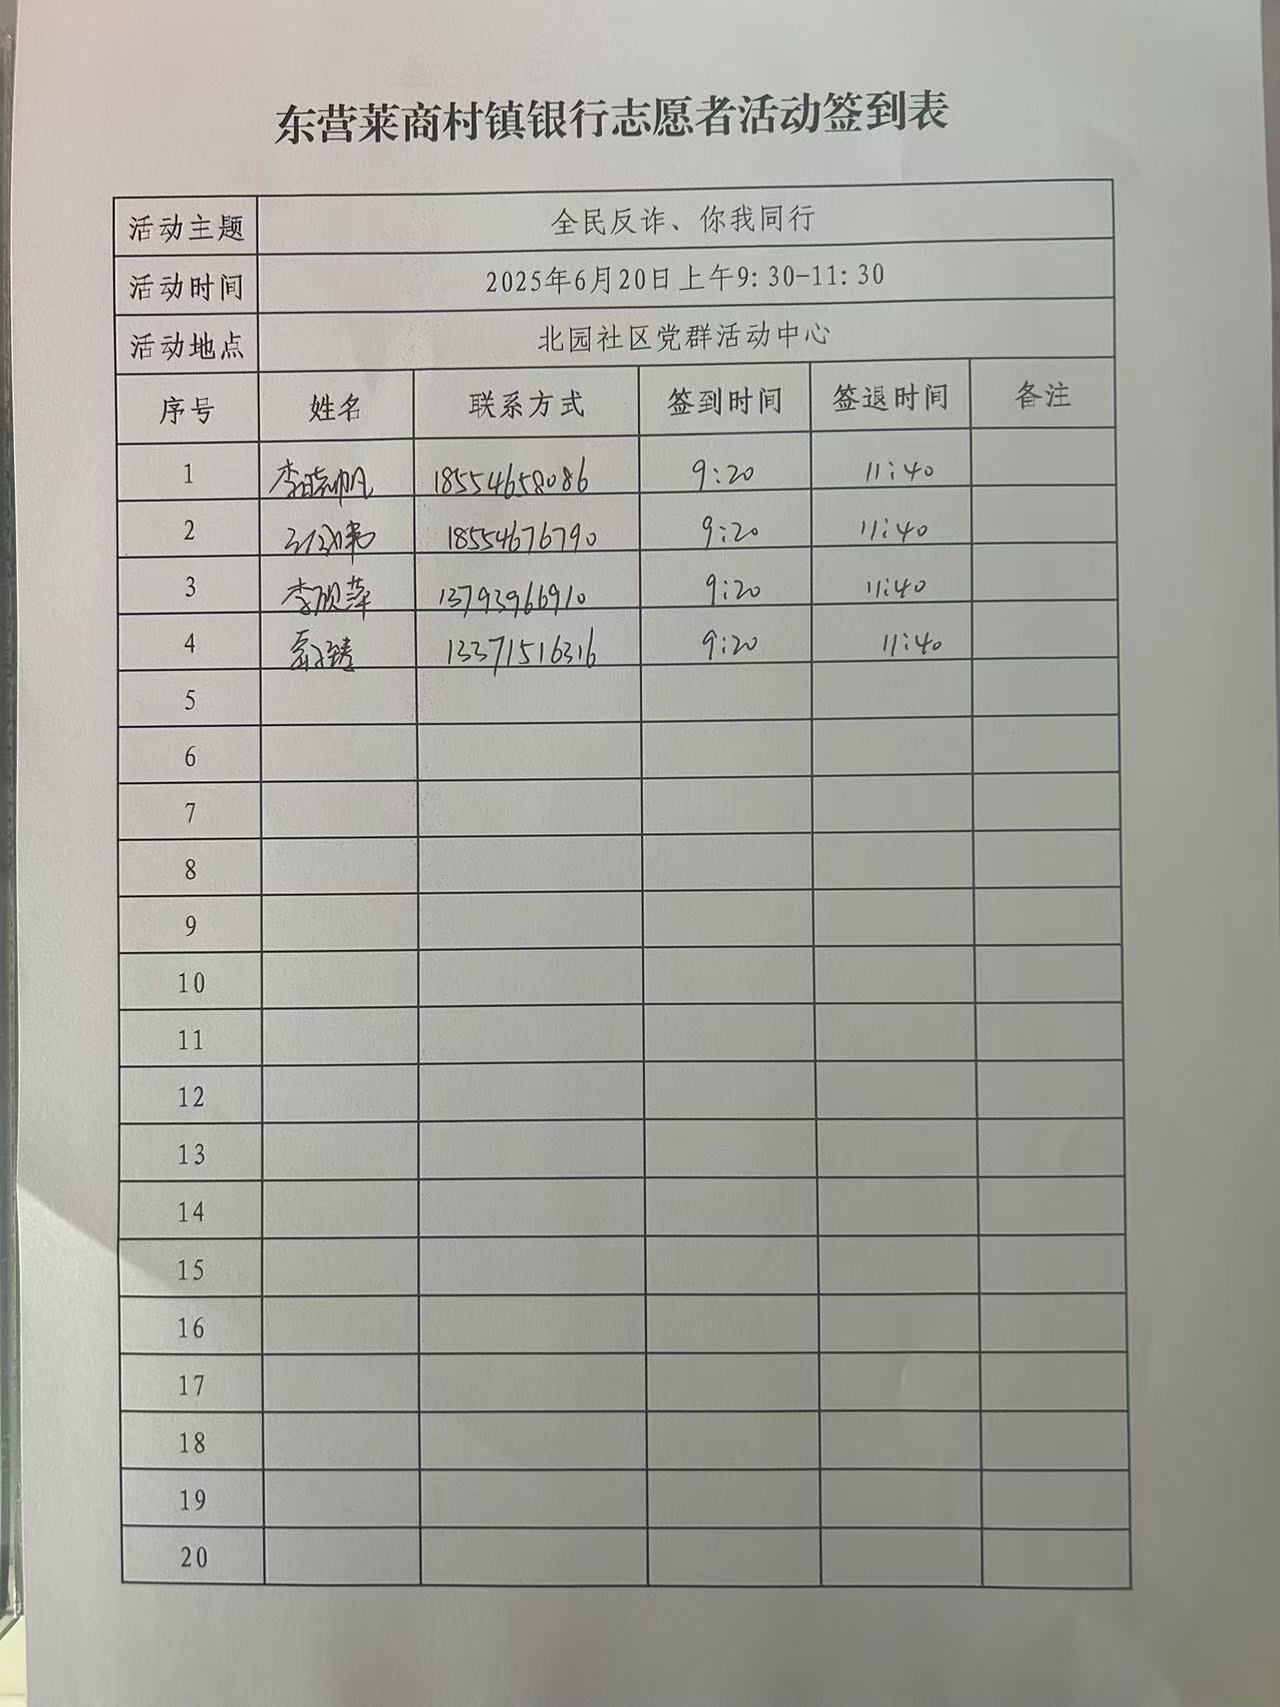 东营莱商村镇银行志愿者活动签到表
活动主题 全民反诈、你我同行
活动时间 2025年6月20日上午9:30-11:30
活动地点 北园社区党群活动中心
序号 姓名 联系方式 签到时间 签退时间 备注
1 李晓帆 18554658086 9:20 11:40
2 18554676790 9:20 11:40
3 李硕萍 13793966910 9:20 11:40
4 13371516316 9:20 11:40
5
6
7
8
9
10
11
12
13
14
15
16
17
18
19
20